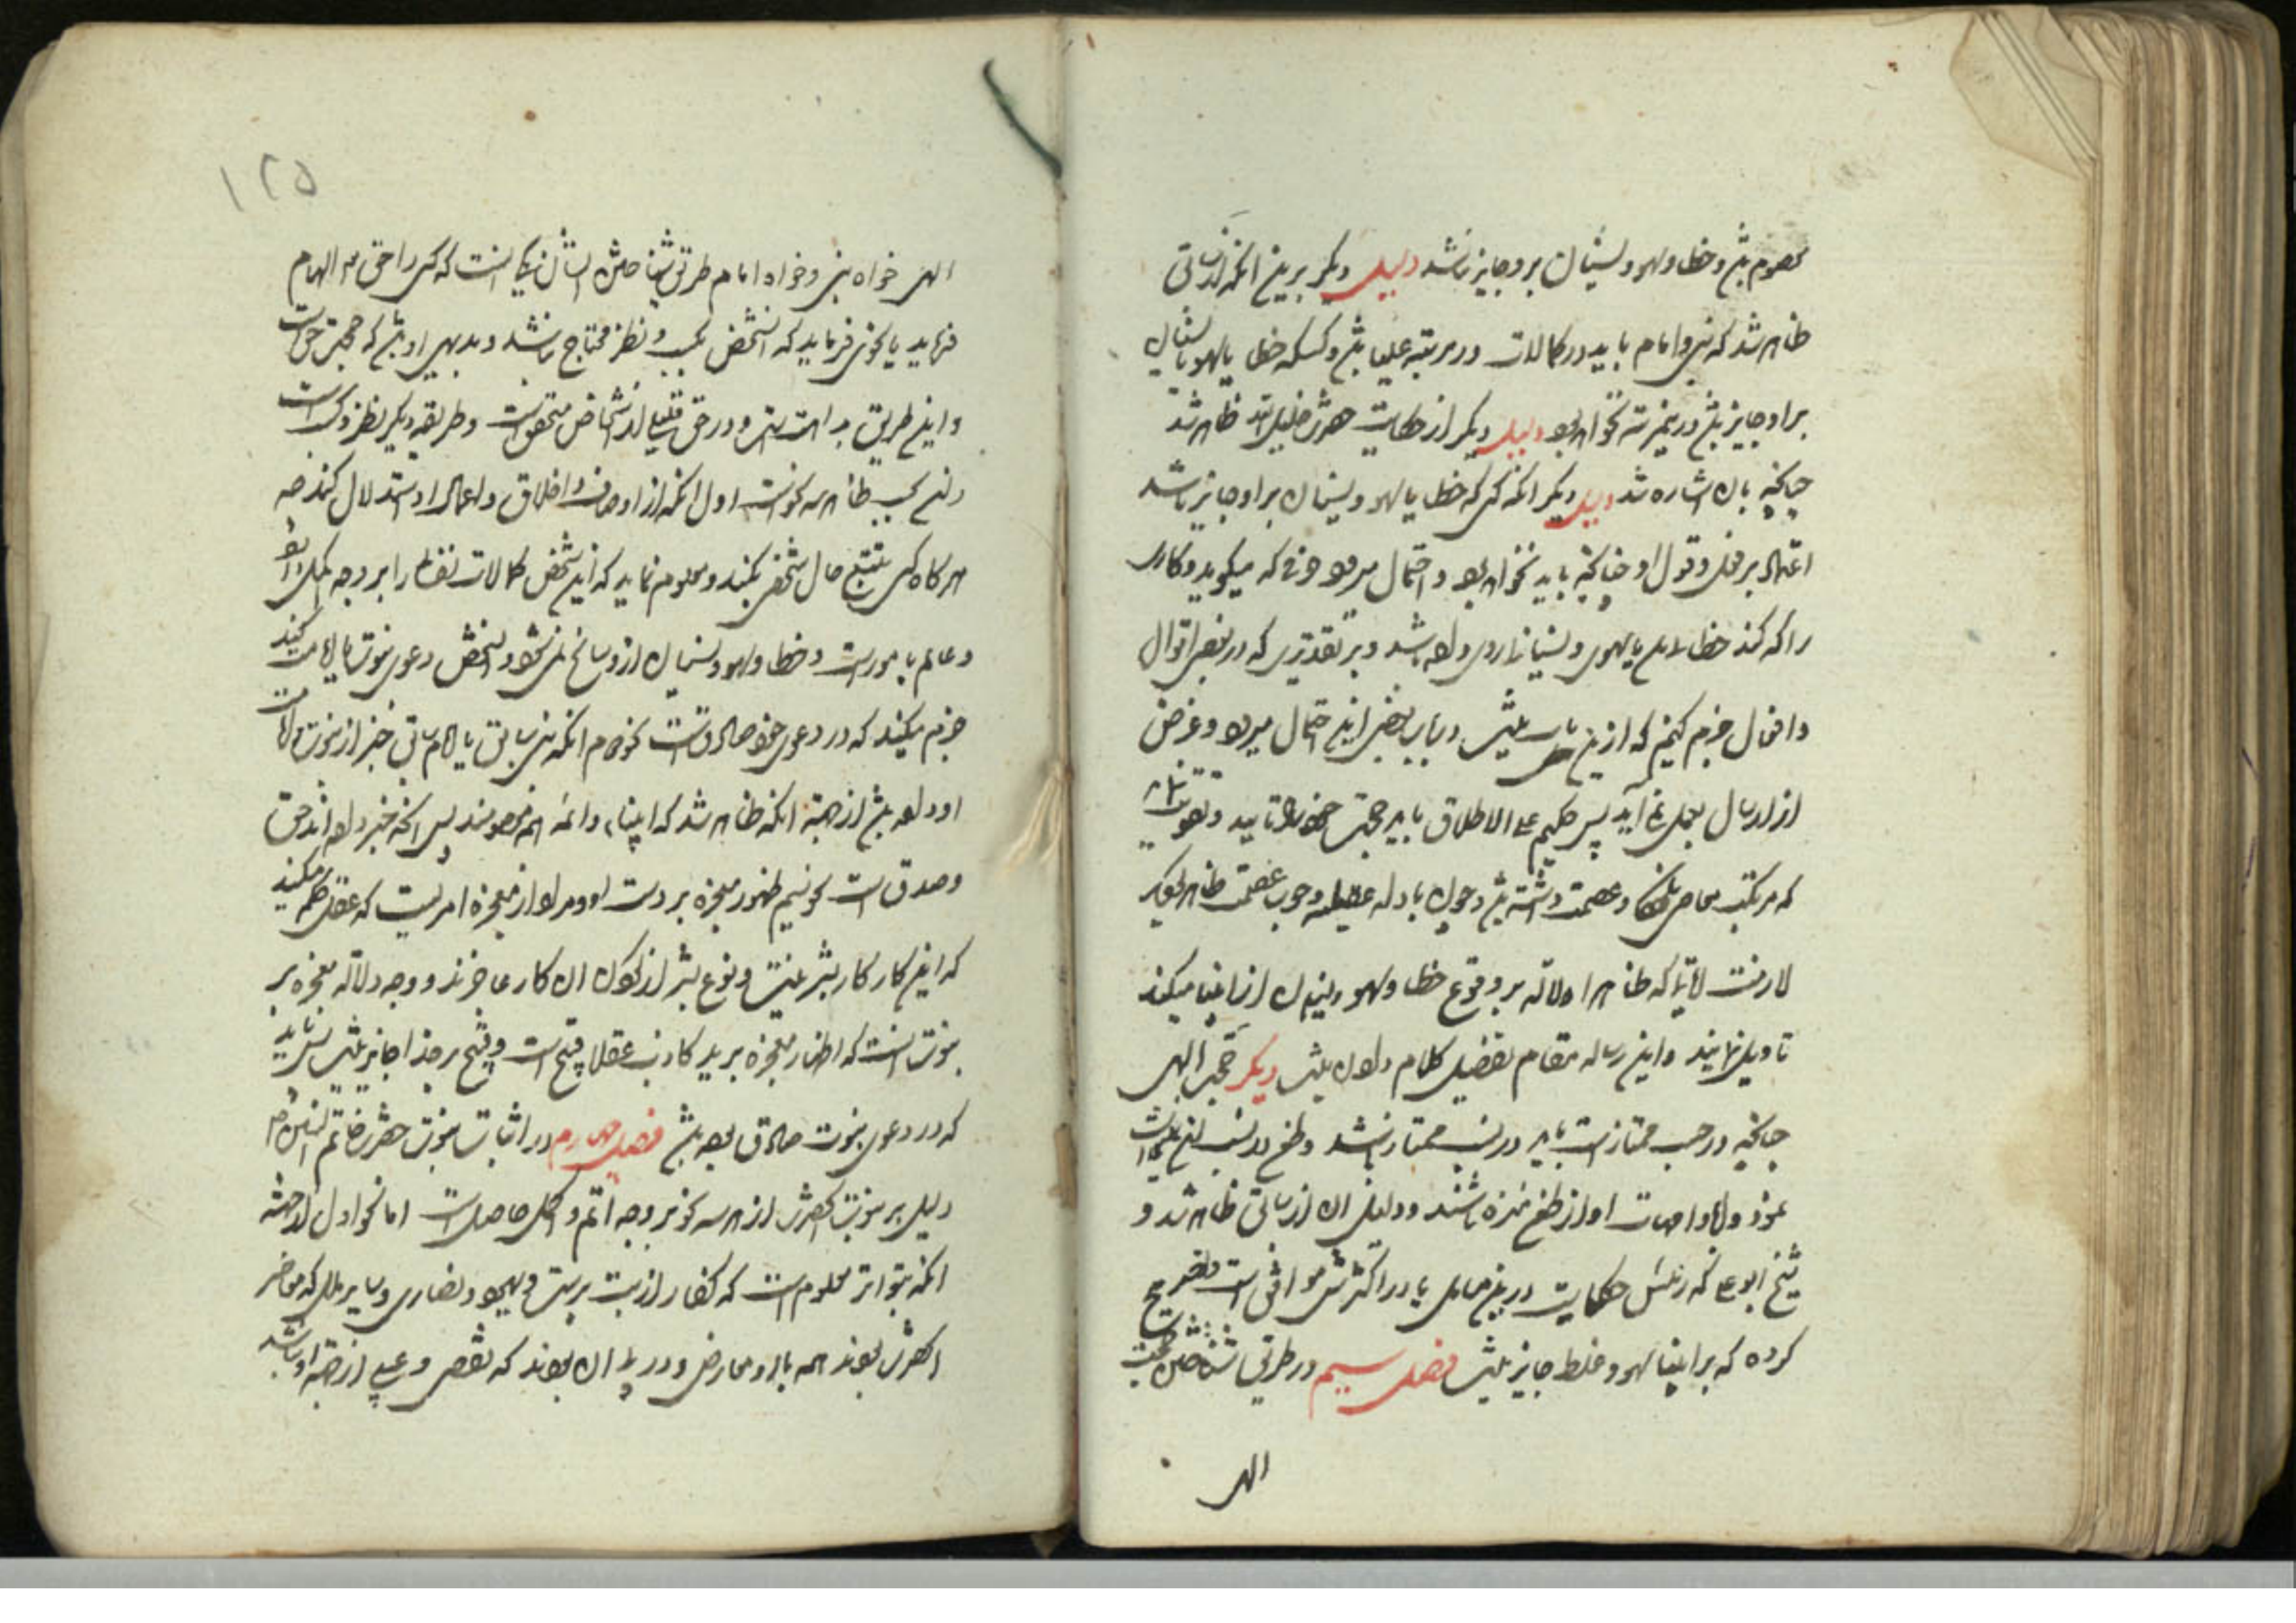 معصوم باشد و خطا و سهو و نسیان بر او جایز نباشد دلیل دیگر برین آنکه از سابق
ظاهر شد که نبی و امام باید در کمالات در مرتبه علیا باشد و کسیکه خطا یا سهو یا نسیان
بر او جایز باشد درین مرتبه نخواهد بود دلیل دیگر از حکایت حضرت خلیل الله ظاهر شد
چنانچه بآن اشاره شد دلیل دیگر آنکه کسی که خطا یا سهو و نسیان بر او جایز باشد
اعتماد بر فعل و قول او چنانچه باید نخواهد بود و احتمال میرود حرفی که میگوید و کاری
را که کند خطا یا سهوی و نسیانی روی داده باشد و بر تقدیری که در بعضی اقوال
و افعال جزم کنیم که ازین باب نیست در باب بعضی این احتمال میرود و غرض
از ارسال بعمل نمی آید پس حکیم علی الاطلاق باید حجت خود را تایید و تقویت نماید
که مرتکب معاصی نشود و عصمت داشته باشد و چون بادله عقلیه وجوب عصمت ظاهر بود
لازمست آیاتی که ظاهرا دلالت بر وقوع خطا و سهو و نسیان از انبیا میکند
تاویل نمایند و این رساله مقام تفصیل کلام در آن نیست دیگر حجت الهی
چنانچه در حسب ممتاز است باید در نسب ممتاز باشد و طعن در نسب
خود و آبا و امهات او از طعن منزه باشند و دلیل آن از سابق ظاهر شد و
شیخ ابو علی که رئیس حکما است درین مسایل یا در اکثرش موافق است و تصریح
کرده که بر انبیا سهو و غلط جایز نیست فصل سیم در طریق شناختن حجت
الهی
۱۲۵
الهی خواه نبی و خواه امام طریق شناختن ایشان یکی آنست که کسی را حق تعالی الهام
فرماید یا نحوی فرماید که آن شخص بکسب و نظر محتاج نباشد و بدیهی او باشد که حجت حق است
و این طریق بداهت است و در حق قلیلی از اشخاص متحقق است و طریقه دیگر نظر و کسب است
و این بحسب ظاهر سه نحو است اول آنکه از اوصاف و اخلاق و اعمال او استدلال کنند چه
هر گاه کسی تتبع حال شخصی بکند و معلوم نماید که این شخص کمالات نفسانی را بر وجه کمال دارد
و عالم بامور است و خطا و سهو و نسیان ازو سانح نمی شود و آن شخص دعوی نبوت یا امامت کند
جزم میکند که در دعوی خود صادق است نحو دوم آنکه نبی سابق یا امام سابق خبر از نبوت یا امامت
او داده باشد از جهة آنکه ظاهر شد که انبیا و ائمه همه معصومند پس آنچه خبر داده اند حق
و صدق است نحو سیم ظهور معجزه بر دست او و مراد از معجزه امریست که عقل حکم میکند
که این کار کار بشر نیست و نوع بشر از نحو آن کار عاجزند و وجه دلالة معجزه بر
نبوت آنست که اظهار معجزه بر ید کاذب عقلا قبیح است و قبیح بر خدا جایز نیست پس باید
که در دعوی نبوت صادق بوده باشد فصل چهارم در اثبات نبوت حضرت خاتم النبیین
دلیل بر نبوت آنحضرت از هر سه نحو بر وجه اتم و اکمل حاصل است اما نحو اول از جهة
آنکه بتواتر معلوم است که کفار از بت پرست و یهود و نصاری و سایر ملل که معاصر
آنحضرت بودند همه با او معارض و در پی آن بودند که نقصی و عیبی از جهة او باشد